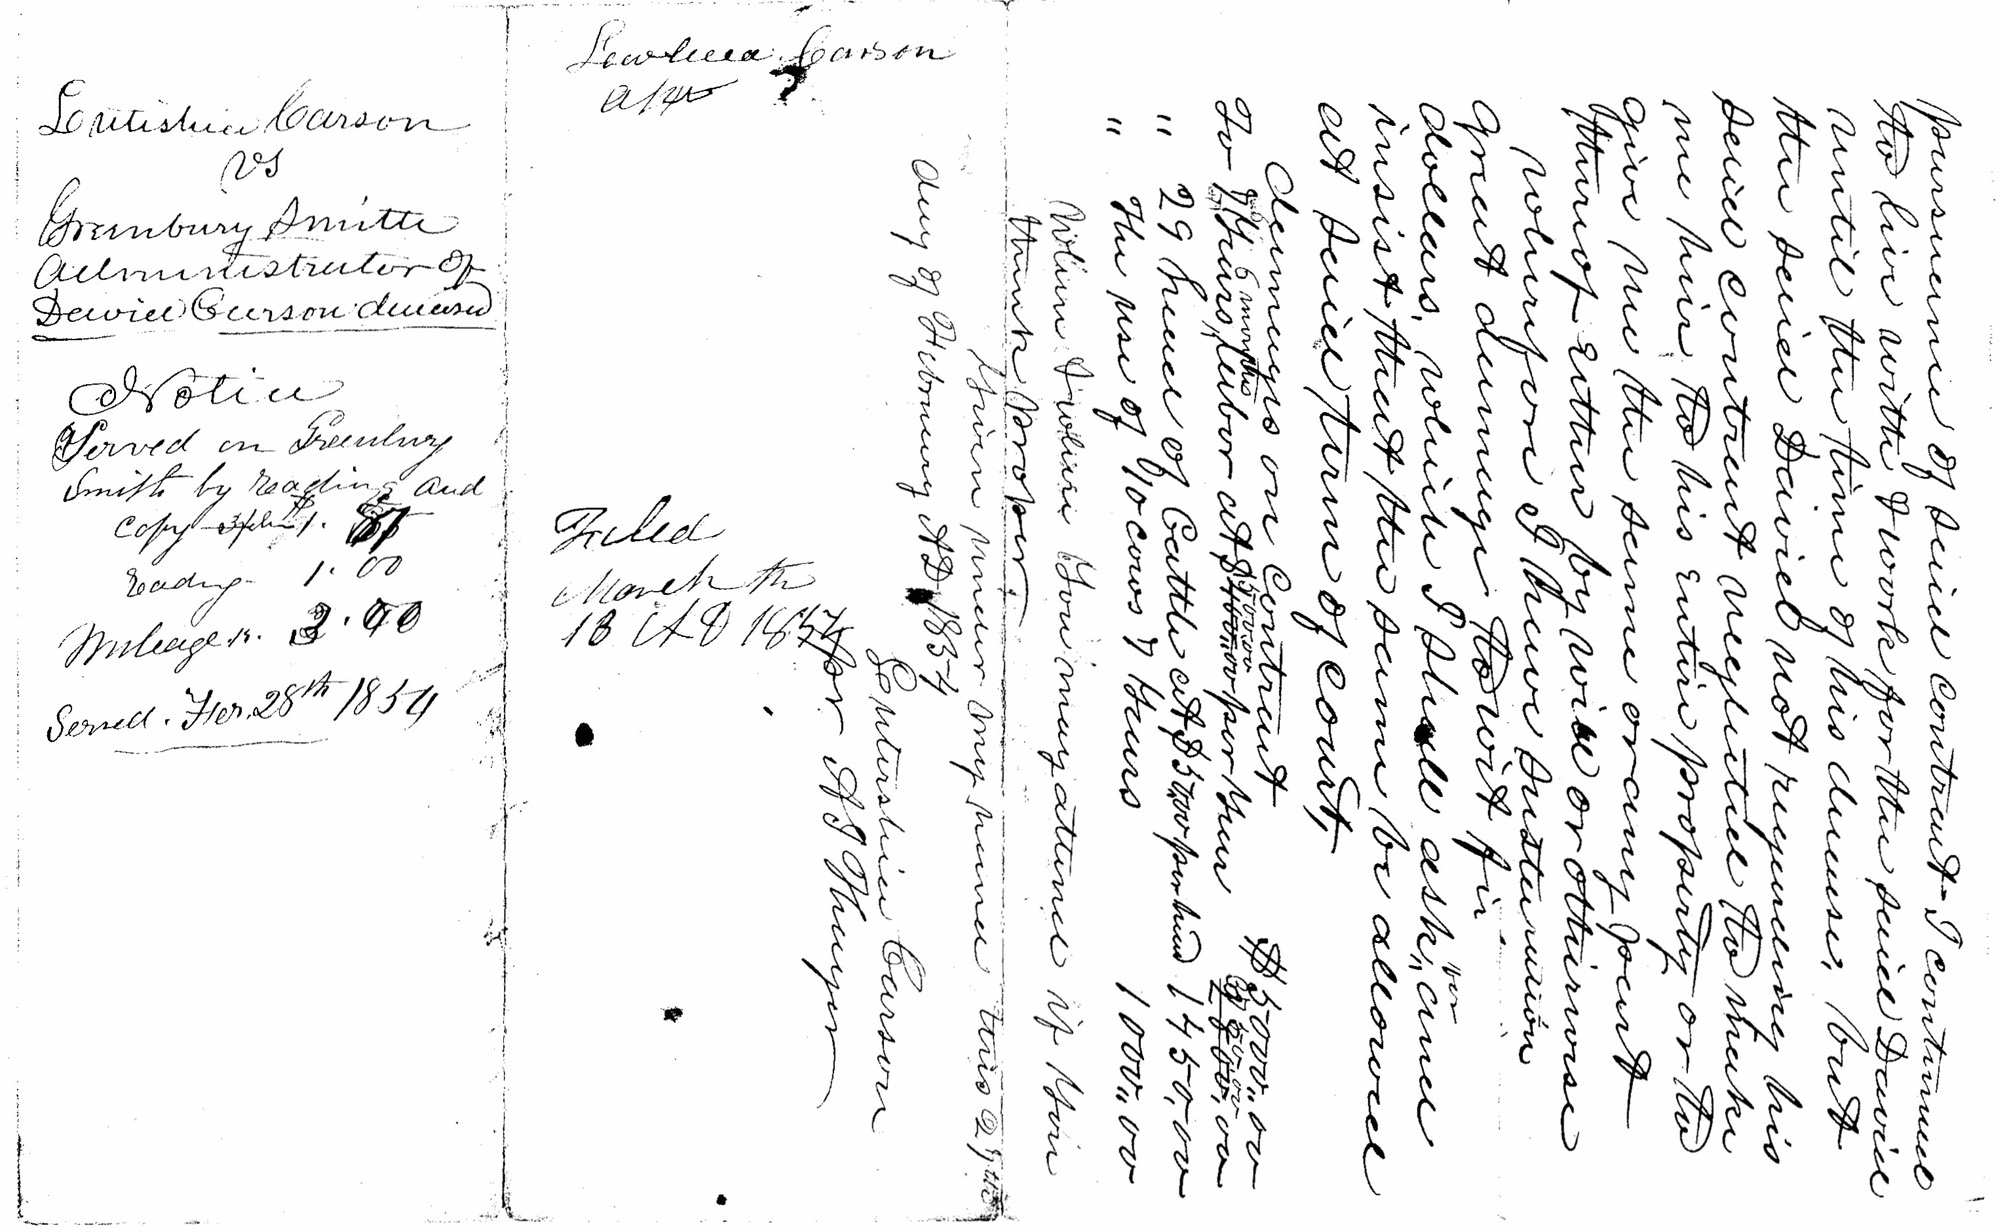 Lutishia Carson
vs
Greenbury Smith
Administrator of
David Carson deceased
Notice
Served on Greenbury
Smith by reading and
copy 1.
reading 1.00
Mileage
Served. Feb. 28th 1854
Carson
Filed
March th
13 AD 1854
pursuence of said contract I continued
to live with & work for the said David
until the time of his decease, but
the said David not regarding his
said contract neglected to make
me heir to his entire property or to
give me the same or any part
thereof either by will or otherwise
wharfore I have sustained
great damage to wit fiv
dollars, which I shall ask, and
insist that the same be allowed
at said term of court,
damages on Contract $5000,,00
To years 6 months labor at $500,00 per year
" 29 head of Cattle at $50,00 per head 1450,00
" The use of 10 cows 7 years 1000,,00
When & where You may attend if you
think proper.
Given under my hand this 27th
day of Febrnary AD 1854
Lutershia Carson
per A J Thayer